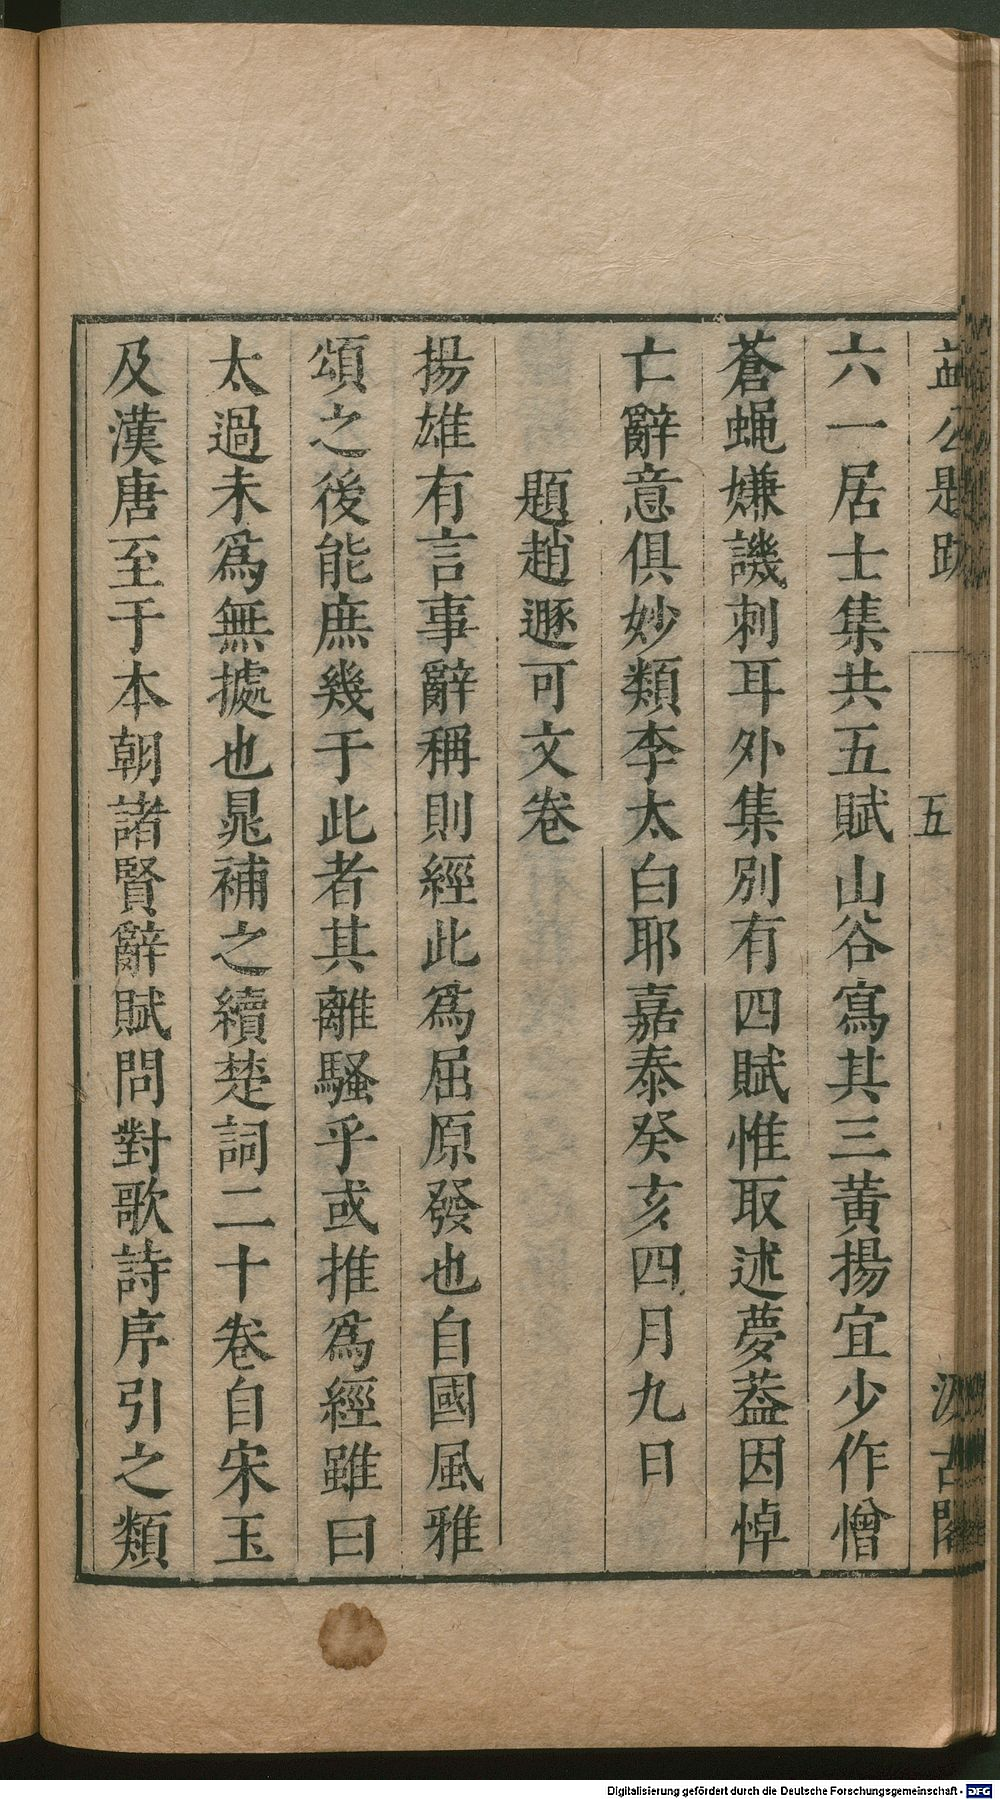 益公題跋 五 汲古閣
六一居士集共五賦山谷寫其三黃揚宜少作憎
蒼蝇嫌譏刺耳外集別有四賦惟取述夢葢因悼
亡辭意俱妙類李太白耶嘉泰癸亥四月九日
題趙遯可文卷
揚雄有言事辭稱則經此爲屈原發也自國風雅
頌之後能庶幾于此者其離騷乎或推爲經雖曰
太過未爲無據也晁補之續楚詞二十卷自宋玉
及漢唐至于本朝諸賢辭賦問對歌詩序引之類
Digitalisierung gefördert durch die Deutsche Forschungsgemeinschaft - DFG